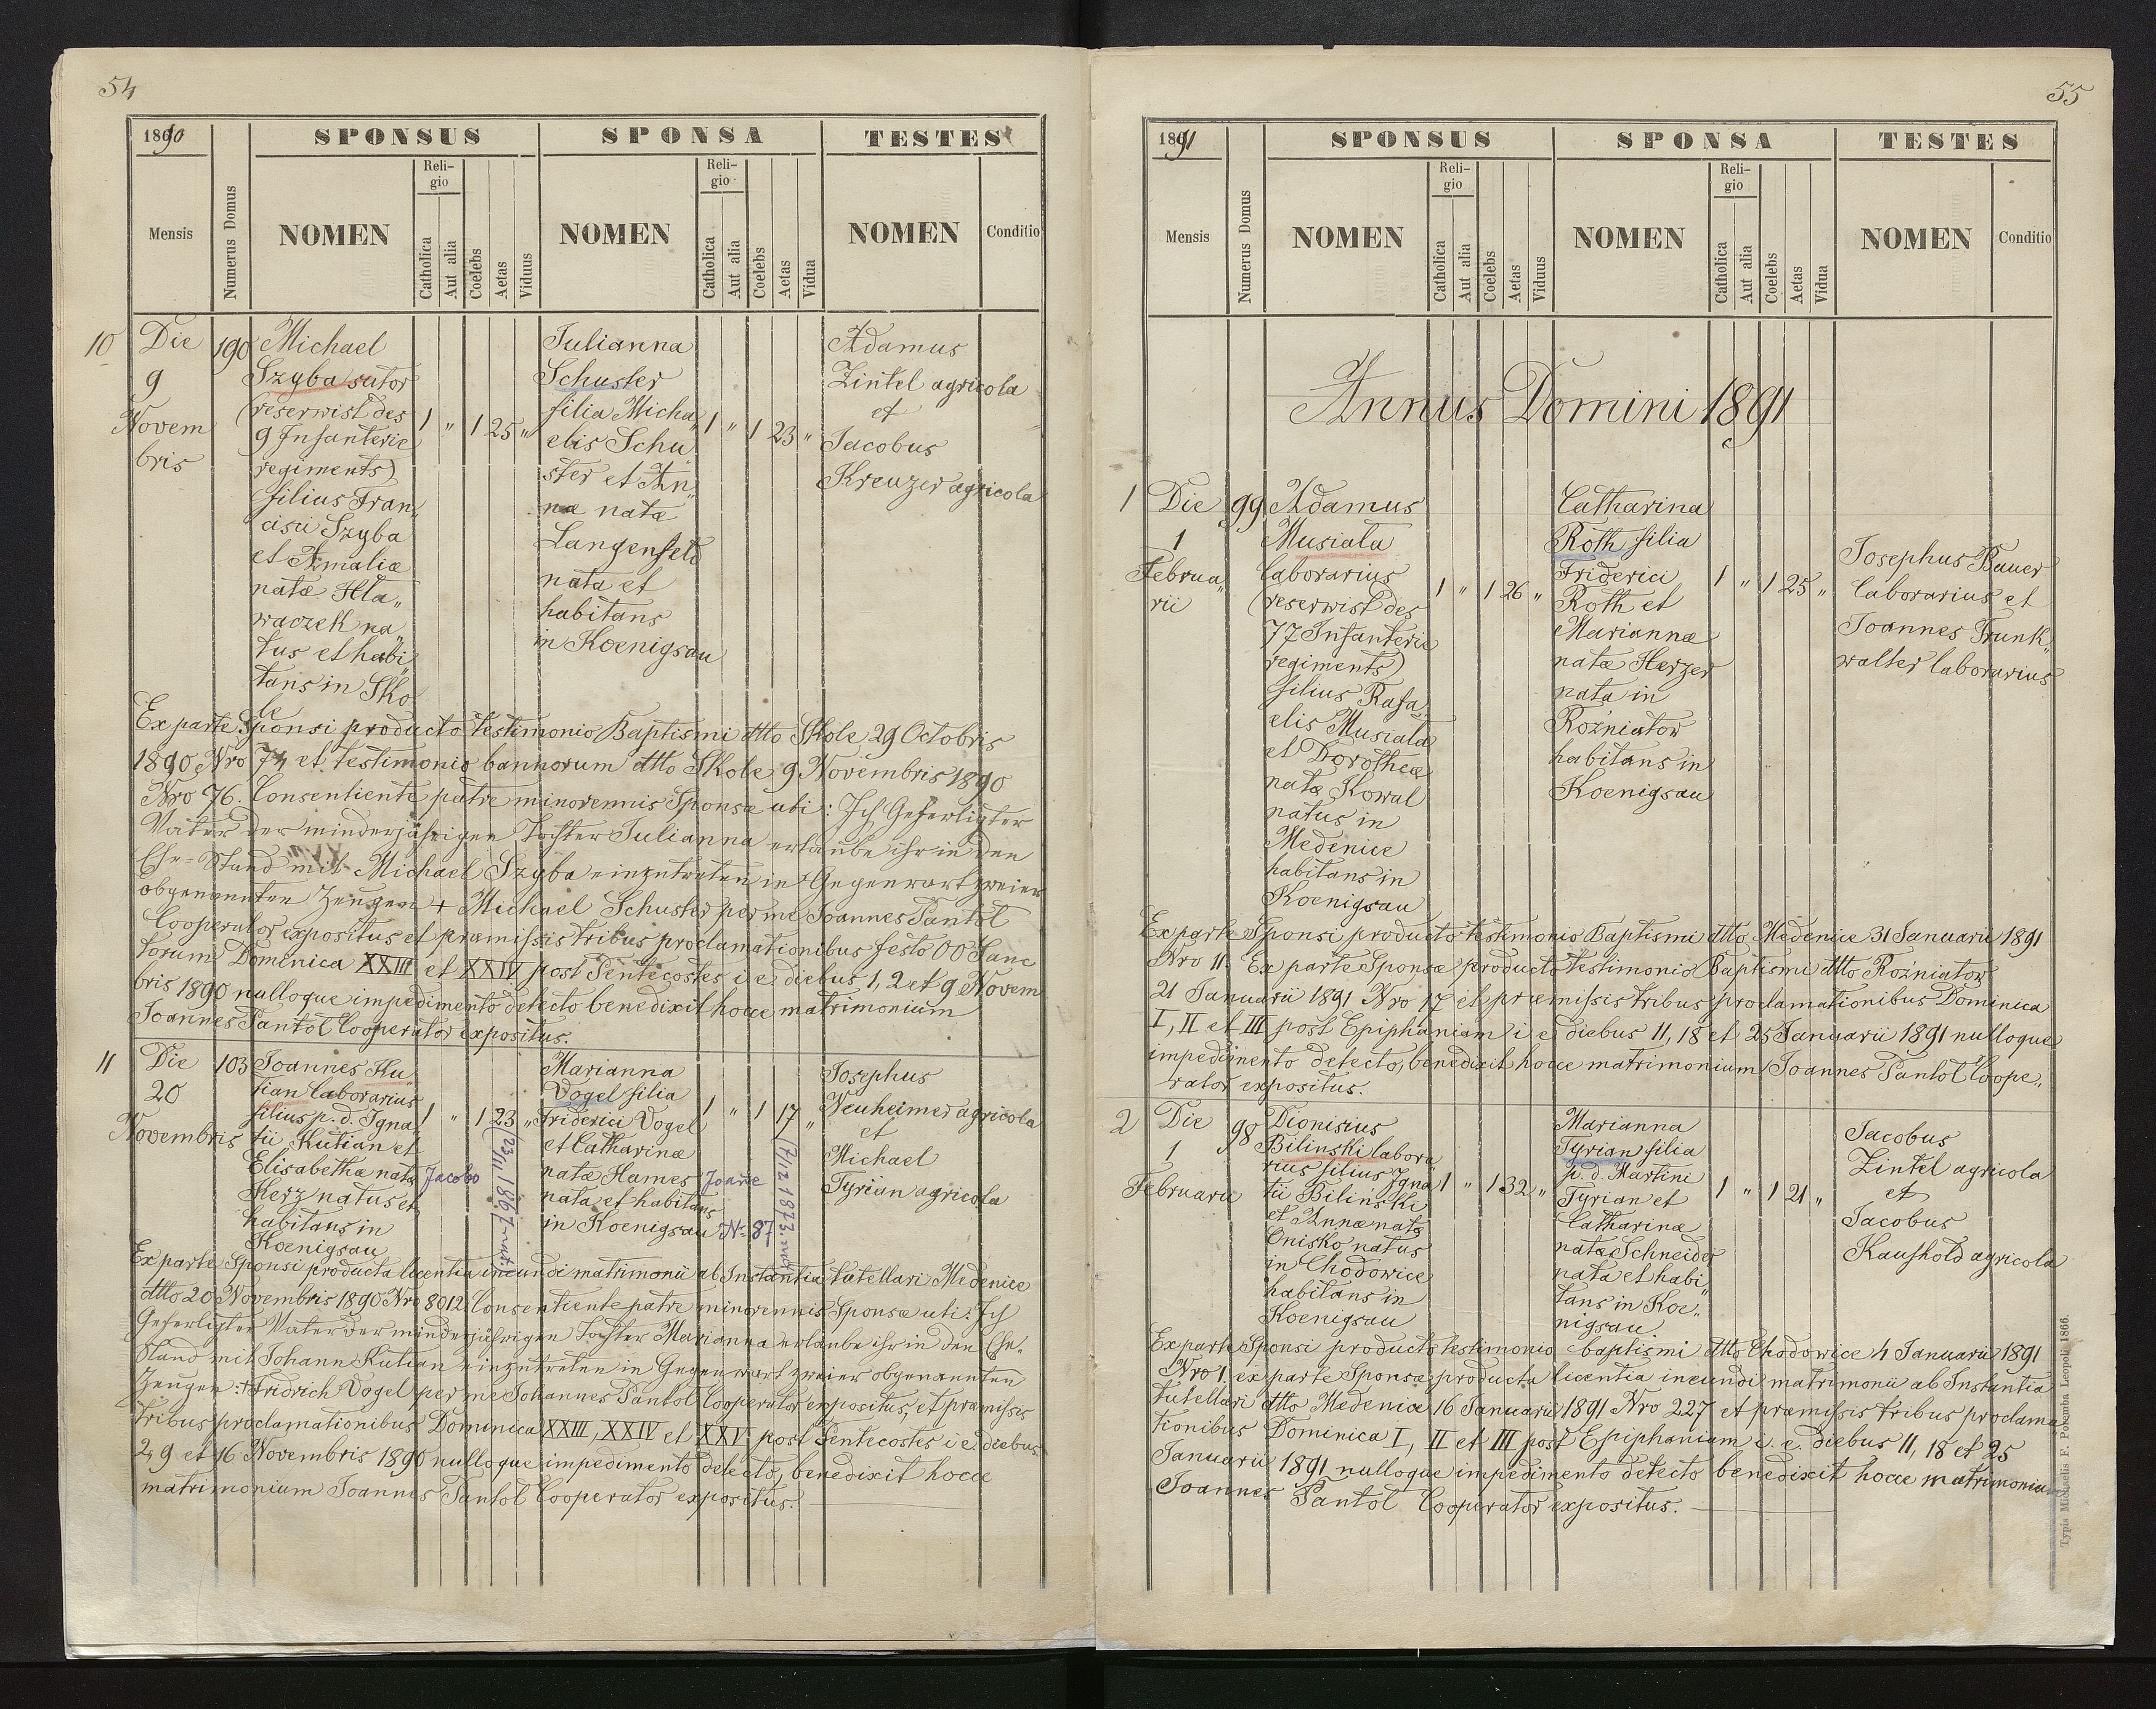 54
1890
SPONSUS
SPONSA
TESTES
Mensis
Numerus Domus
NOMEN
Religio
Catholica
Aut alia
Coelebs
Aetas
Viduus
NOMEN
Religio
Catholica
Aut alia
Coelebs
Aetas
Vidua
NOMEN
Conditio
10
Die
9
Novem
bris
190
Michael
Szyba sutor
(reserwist des
9 Infanterie
regiments)
filius Fran„
cisci Szyba
et Amaliæ
natæ Hla„
waczek na„
tus et habi„
tans in Sko
le
1 „ 1 25 „
Julianna
Schuster
filia Micha„
elis Schu
ster et An„
næ natæ
Langenfeld
nata et
habitans
in Koenigsau
1 „ 1 23 „
Adamus
Zintel agricola
et
Jacobus
Kreuzer agricola
Ex parte Sponsi producto testimonio Baptismi dtto Skole 29 Octobris
1890 Nro 74 et testimonio bannorum dtto Skole 9 Novembris 1890
Nro 76. Consentiente patre minorennis Sponsæ uti: Ich Gefertigter
Vater der minderjährigen Tochter Julianna erlaube ihr in den
Ehe-Stand mit Michael Szyba einzutreten in Gegenwart zweier
obgenannten Zeugen + Michael Schuster per me Joannes Pantol
Cooperator expositus et præmissis tribus proclamationibus festo OO Sanc
torum Dominica XXIII et XXIV post Pentecostes i e diebus 1, 2 et 9 Novem
bris 1890 nulloque impedimento detecto benedixit hocce matrimonium
Joannes Pantol Cooperator expositus.
11
Die
20
Novembris
103
Joannes Ku„
tian laborarius
filius p. d. Igna
tii Kutian et
Elisabethæ nata Jacobo
Kerz natus et
habitans in
Koenigsau
1 „ 1 23 „
(23/11. 1867 nat.)
Marianna
Vogel filia
Friderici Vogel
et Catharinæ
natæ Hames Joane
nata et habitans
in Koenigsau No 87
1 „ 1 17 „
(7/12 1873. nat)
Josephus
Neuheimer agricola
et
Michael
Tyrian agricola
Ex parte Sponsi producta licentia ineundi matrimonii ab Instantia tutellari Medenice
dtto 20 Novembris 1890 Nro 8012 Consentiente patre minorennis Sponsæ uti: Ich
Gefertigter Vater der minderjährigen Tochter Marianna erlaube ihr in den Ehe-
Stand mit Johann Kutian einzutreten in Gegenwart zweier obgenannten
Zeugen: + Fridrich Vogel per me Johannes Pantol Cooperator expositus, et præmissis
tribus proclamationibus Dominica XXIII, XXIV et XXV post Pentecostes i e. diebus
2, 9 et 16 Novembris 1890 nulloque impedimento detecto, benedixit hocce
matrimonium Joannes Pantol Cooperator expositus.
55
1891
SPONSUS
SPONSA
TESTES
Mensis
Numerus Domus
NOMEN
Religio
Catholica
Aut alia
Coelebs
Aetas
Viduus
NOMEN
Religio
Catholica
Aut alia
Coelebs
Aetas
Vidua
NOMEN
Conditio
Annus Domini 1891
1
Die
1
Februa„
rii
99
Adamus
Musiala
laborarius
(reserwist des
77 Infanterie
regiments)
filius Rafa„
elis Musiala
et Dorotheæ
natæ Kowal
natus in
Medenice
habitans in
Koenigsau
1 „ 1 26 „
Catharina
Roth filia
Friderici
Roth et
Mariannæ
natæ Herzer
nata in
Rożniatow
habitans in
Koenigsau
1 „ 1 25 „
Josephus Bauer
laborarius et
Joannes Trunk„
walter laborarius
Ex parte Sponsi producto testimonio Baptismi dtto Medenice 31 Januarii 1891
Nro 11. Ex parte Sponsæ producto testimonio Baptismi dtto Rożniatow
21 Januarii 1891 Nro 17 et præmissis tribus proclamationibus Dominica
I, II et III post Epiphaniam i e diebus 11, 18 et 25 Januarii 1891 nulloque
impedimento detecto, benedixit hocce matrimonium Joannes Pantol Coope„
rator expositus.
2
Die
1
Februarii
98
Dionisius
Bilinski labora
rius filius Igna
tii Biliński
et Annæ natæ
Onisko natus
in Chodowice
habitans in
Koenigsau
1 „ 1 32 „
Marianna
Tyrian filia
p. d. Martini
Tyrian et
Catharinæ
natæ Schneider
nata et habi„
tans in Koe„
nigsau.
1 „ 1 21 „
Jacobus
Zintel agricola
et
Jacobus
Kaufhold agricola
Ex parte Sponsi producto testimonio baptismi dtto Chodowice 4 Januarii 1891
Nro 1. ex parte Sponsæ producta licentia ineundi matrimonii ab Instantia
tutellari dtto Medenice 16 Januarii 1891 Nro 227 et præmissis tribus proclama„
tionibus Dominica I, II et III post Epiphaniam i. e. diebus 11, 18 et 25
Januarii 1891 nulloque impedimento detecto benedixit hocce matrimonium
Joannes Pantol Cooperator expositus.
Typis Michaelis F. Poremba Leopoli 1866.